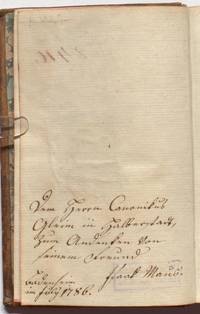 Dem Herrn Canonikus
Gleim in Halberstadt,
zum Andenken von
seinem Freund
Isaak Maus.
Badenheim
im July 1786.